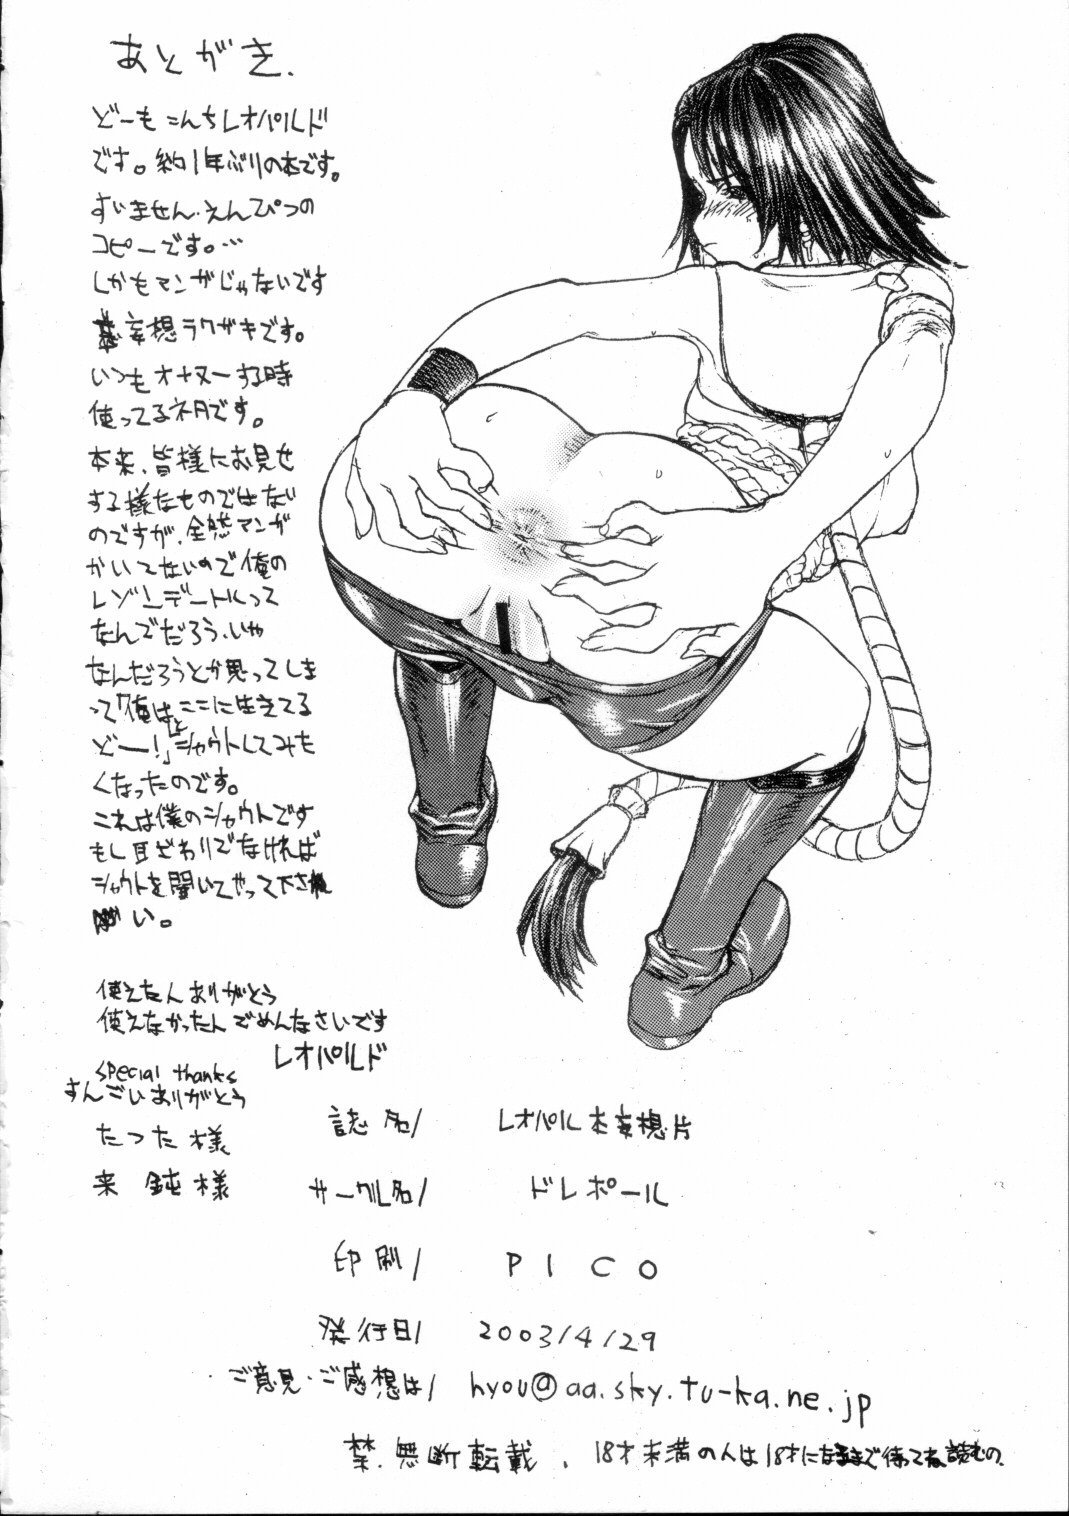 あとがき.
どーも こんちレオパルド
です。約1年ぶりの本です。
すいません・えんぴつの
コピーです。…
しかもマンガじゃないです
妄想ラクガキです。
いつもオナヌーする時
使ってるネタです。
本来、皆様にお見せ
する様なものではない
のですが、全然マンガ
かいてないので俺の
レゾンデートルって
なんでだろう、いや
なんだろうとか思ってしま
って「俺はここに生きてる
どー!」とシャウトしてみも
くなったのです。
これは僕のシャウトです
もし耳ざわりでなければ
シャウトを聞いてやって下され
い。
使えたんありがとう
使えなかったんでめんなさいです
レオパルド
special thanks
すんごいありがとう
たつた様
来 鈍様
誌名/ レオパル本妄想片
サークル名/ ドレポール
印刷/ PICO
発行日/ 2003/4/29
ご意見・ご感想は/ hyou@aa.sky.tu-ka.ne.jp
禁・無断転載、18才未満の人は18才になるまで待ってね読むの.